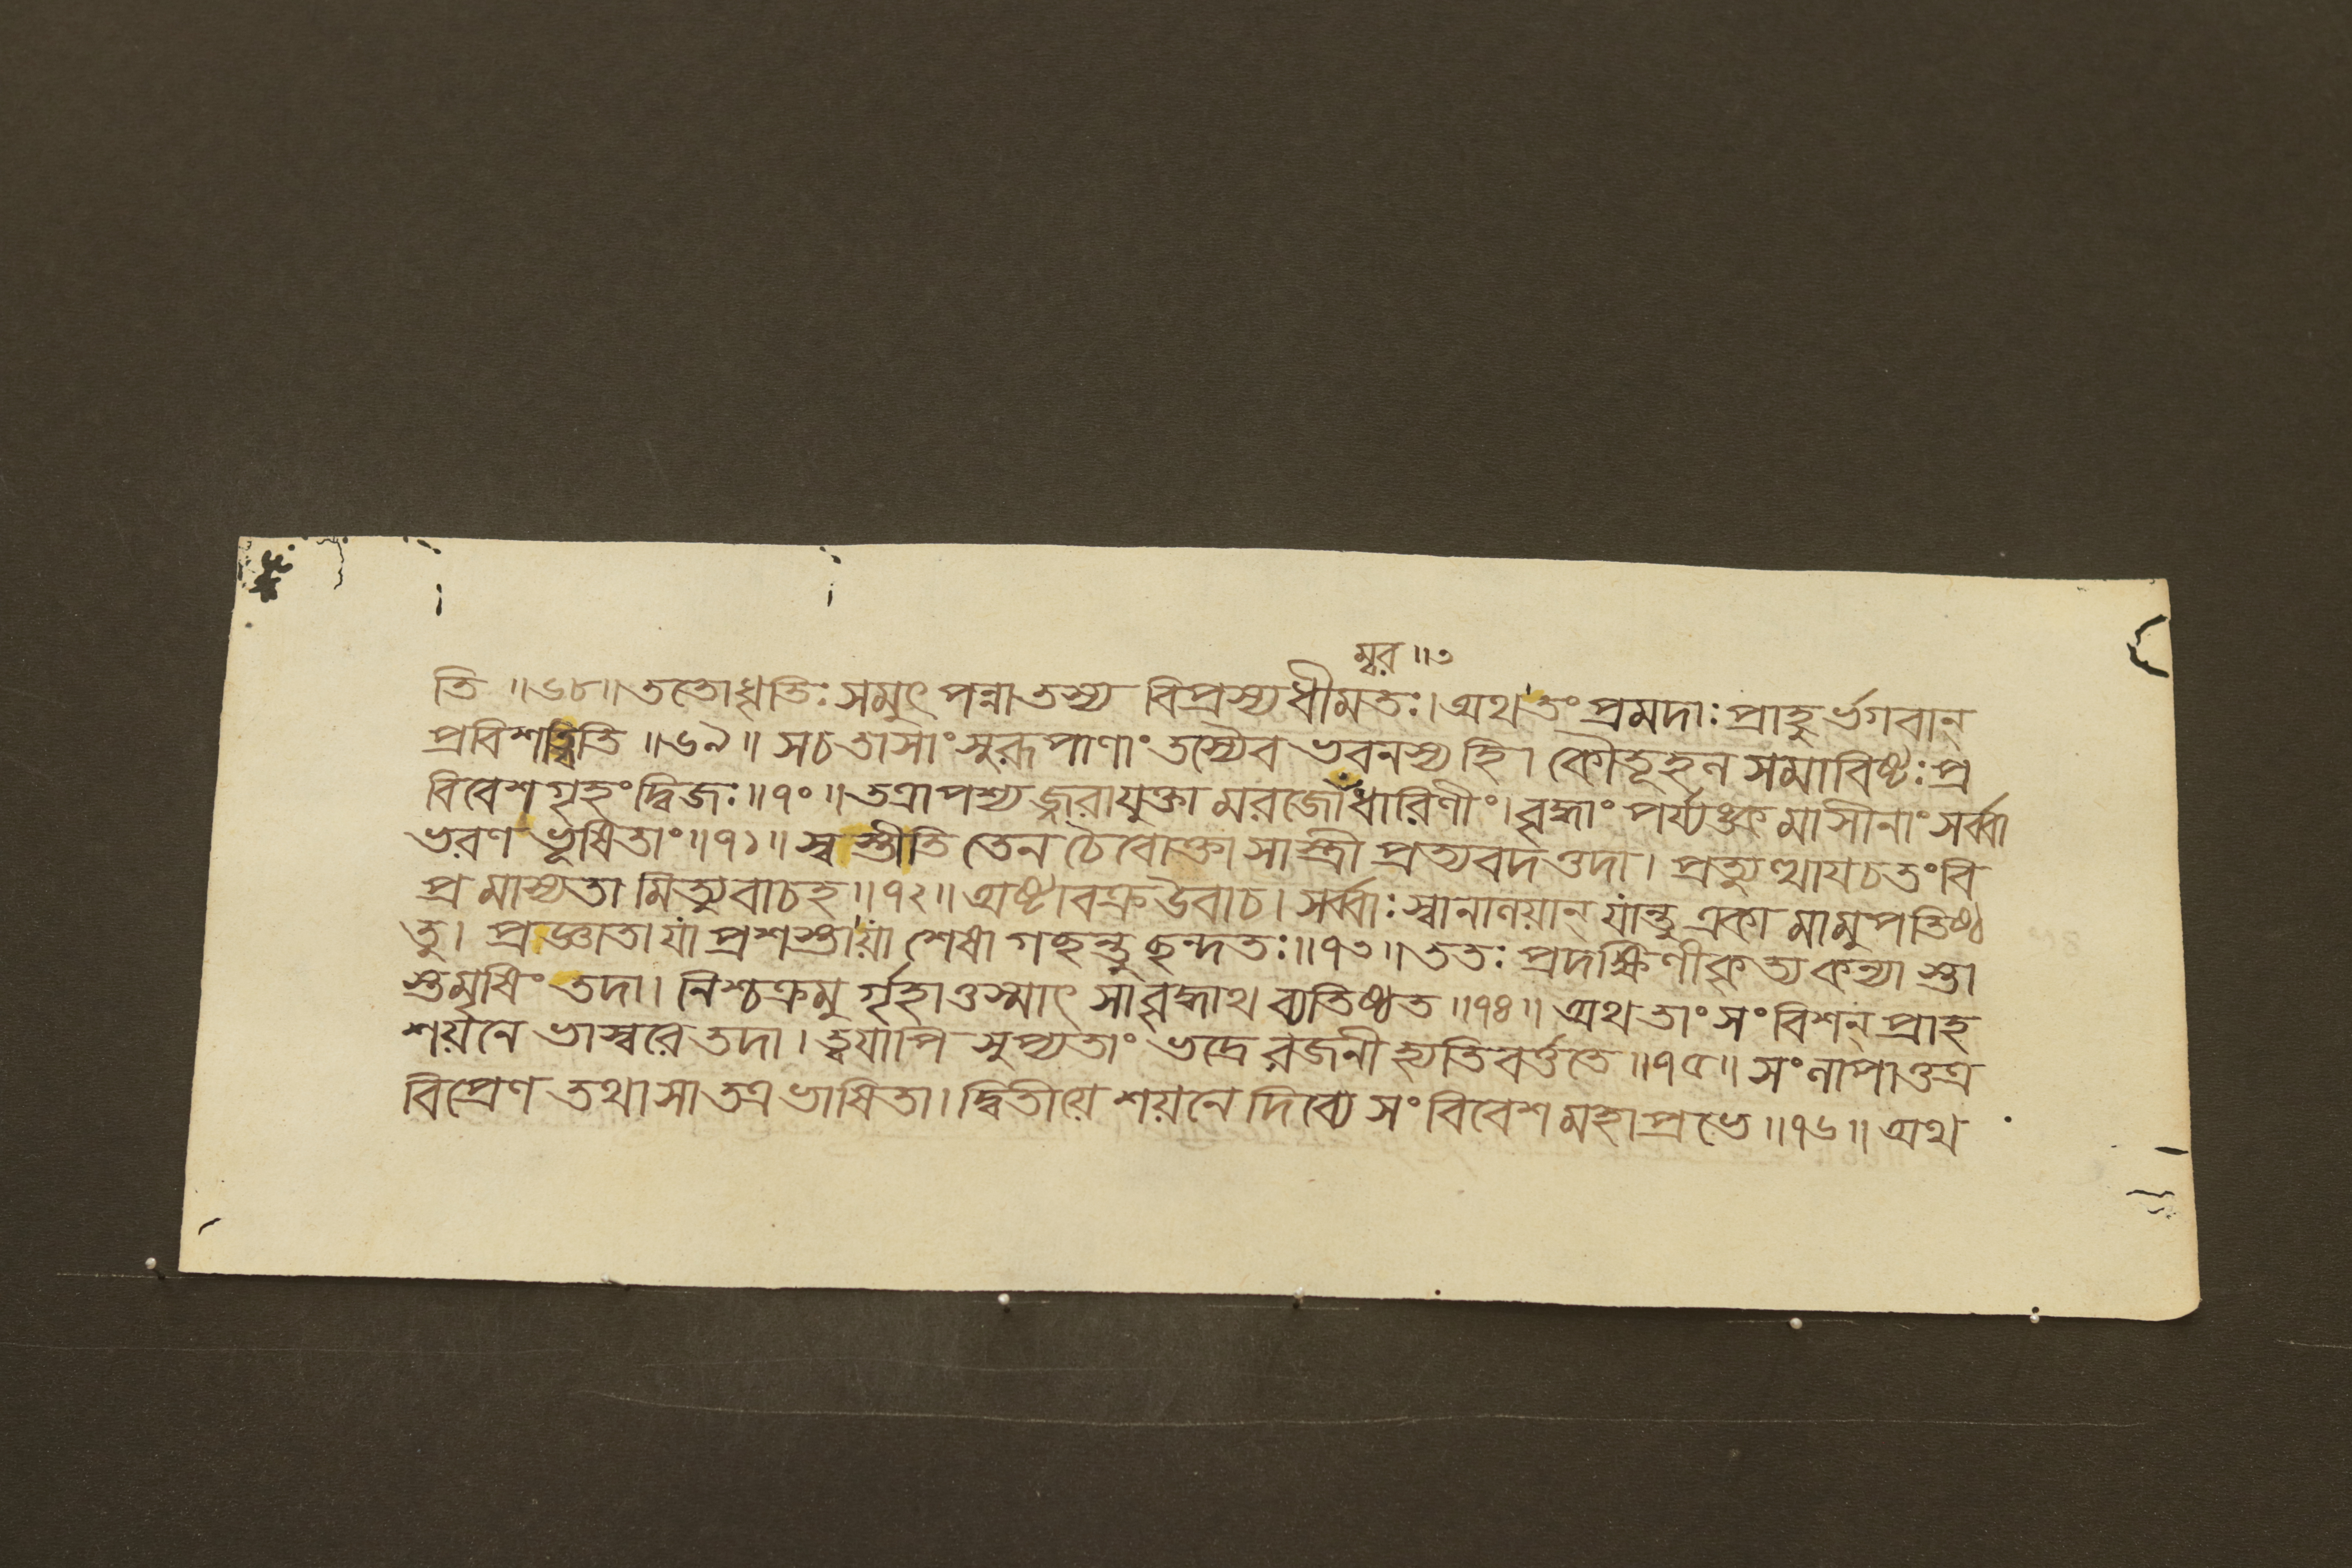 ম্বর ॥৩
তি ॥৬৮॥ ততোধৃতিঃ সমুৎপন্নাতস্য বিপ্রস্যধীমতঃ। অথতং প্রমদাঃ প্রাহুর্ভগবান্
প্রবিশত্বিতি ॥৬৯॥ সচতাসাং সুরূপাণাং তস্যৈব ভবনস্য হি। কৌতূহল সমাবিষ্টঃ প্র
বিবেশ গৃহং দ্বিজঃ॥৭০॥ তত্রাপশ্যজ্জরাযুক্তা মরজোধারিণীং। বৃদ্ধাং পর্য্যঙ্ক মাসীনাং সর্ব্বা
ভরণ ভূষিতাং॥৭১॥ স্বস্তীতি তেন চৈবোক্তা সাস্ত্রী প্রত্যবদত্তদা। প্রত্যুত্থায চতং বি
প্র মাস্যতা মিত্যুবাচহ॥৭২॥ অষ্টাবক্র উবাচ। সর্ব্বাঃ স্বানালয়ান্ যান্তু একা মামুপতিষ্ঠ
তু। প্রজ্ঞাতা যা প্রশস্তা যা শেষা গছন্তু ছন্দতঃ॥৭৩॥ ততঃ প্রদক্ষিণীকৃত্য কন্যা স্তা
স্তমৃষিং তদা। নিশ্চক্রমু র্গৃহাত্তস্মাৎ সাবৃদ্ধাথ ব্যতিষ্ঠত ॥৭৪॥ অথ তাং সংবিশন্ প্রাহ
শয়নে ভাস্বরে তদা। ত্বয়াপি সুপ্যতাং ভদ্রে রজনী হ্যতিবর্ত্ততে ॥৭৫॥ সংলাপাত্তত্র
বিপ্রেণ তথা সা তত্র ভাষিতা। দ্বিতীয়ে শয়নে দিব্যে সংবিবেশ মহাপ্রভে ॥৭৬॥ অথ